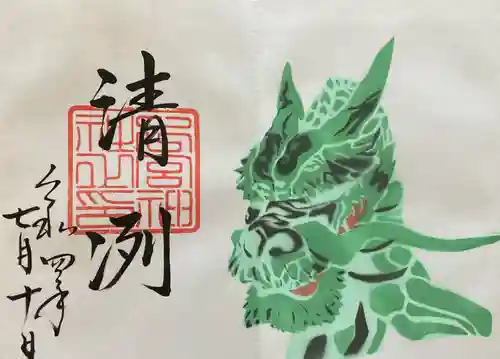 清洌
令和四年
七月十日